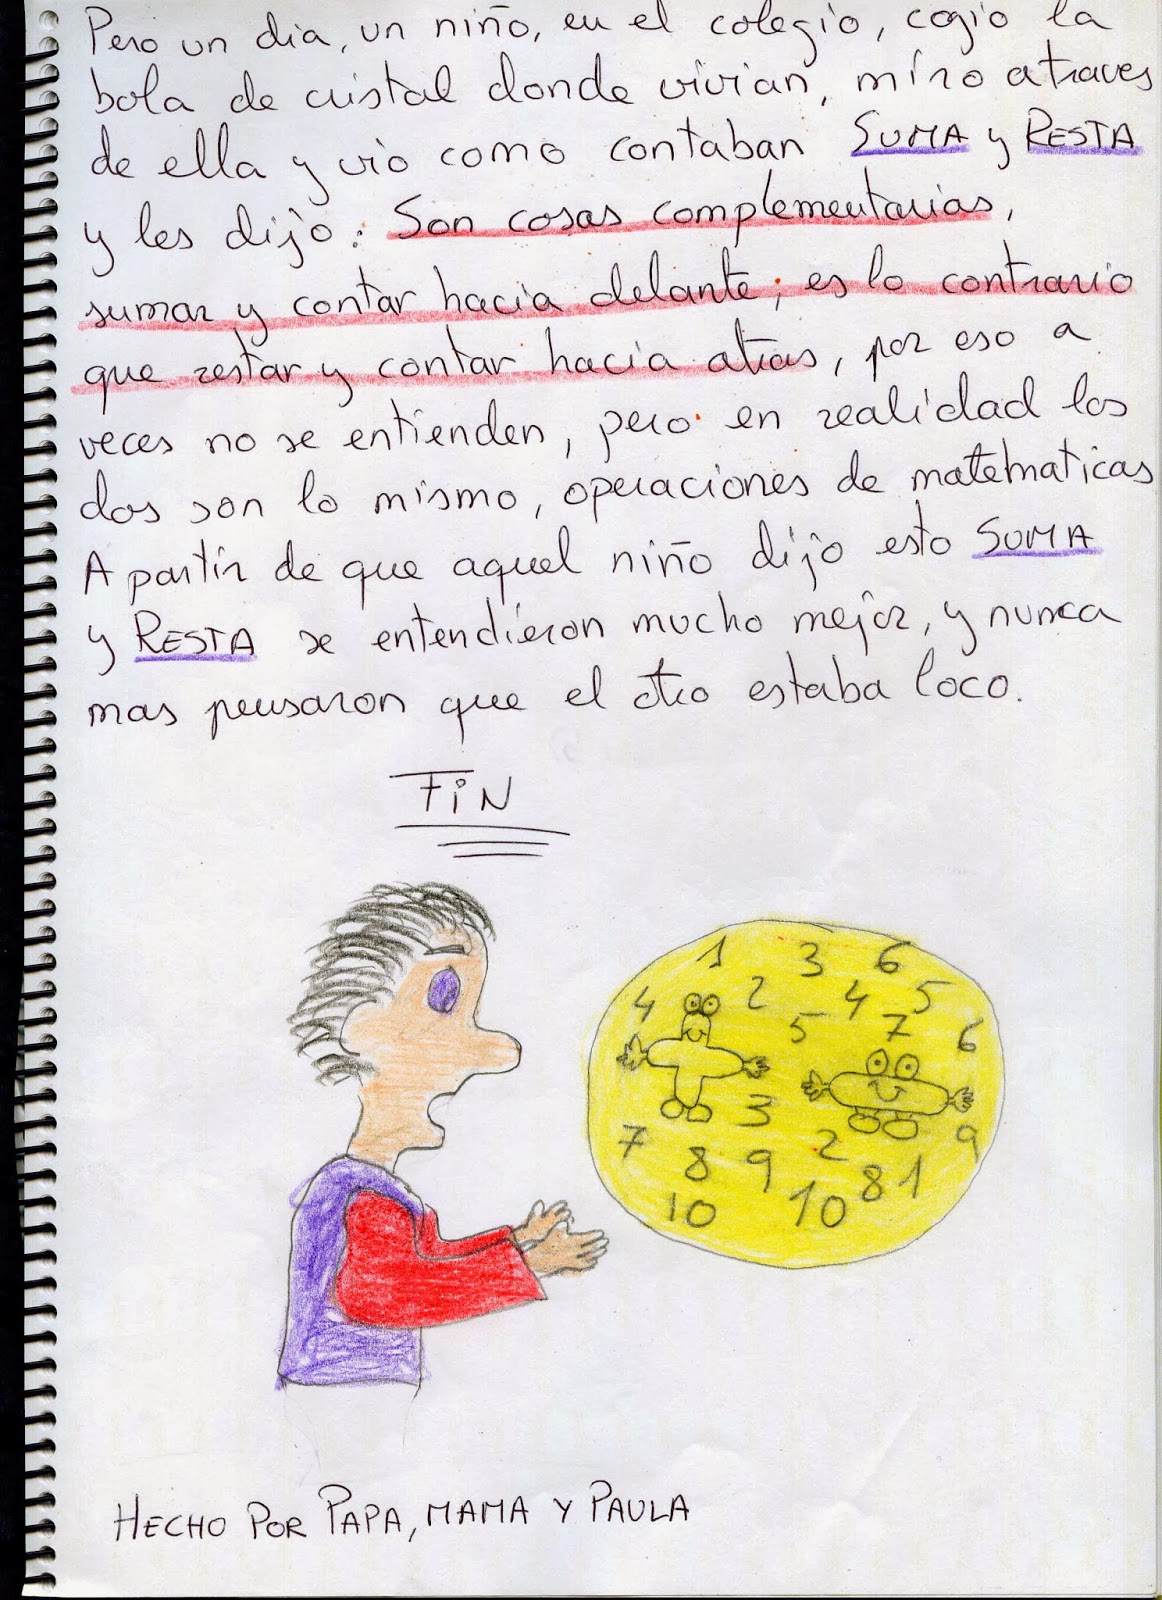 Pero un dia, un niño, en el colegio, cogio la
bola de cristal donde vivian, miro atraves
de ella y vio como contaban SUMA y RESTA
y les dijo: Son cosas complementarias,
sumar y contar hacia delante; es lo contrario
que restar y contar hacia atras, por eso a
veces no se entienden, pero en realidad los
dos son lo mismo, operaciones de matematicas
A partir de que aquel niño dijo esto SUMA
y RESTA se entendieron mucho mejor, y nunca
mas pensaron que el otro estaba loco.
FiN
1 3 6
4 2 4 5
5 7 6
3
7 8 9 2 9
10 10 8 1
HECHO POR PAPA, MAMA Y PAULA